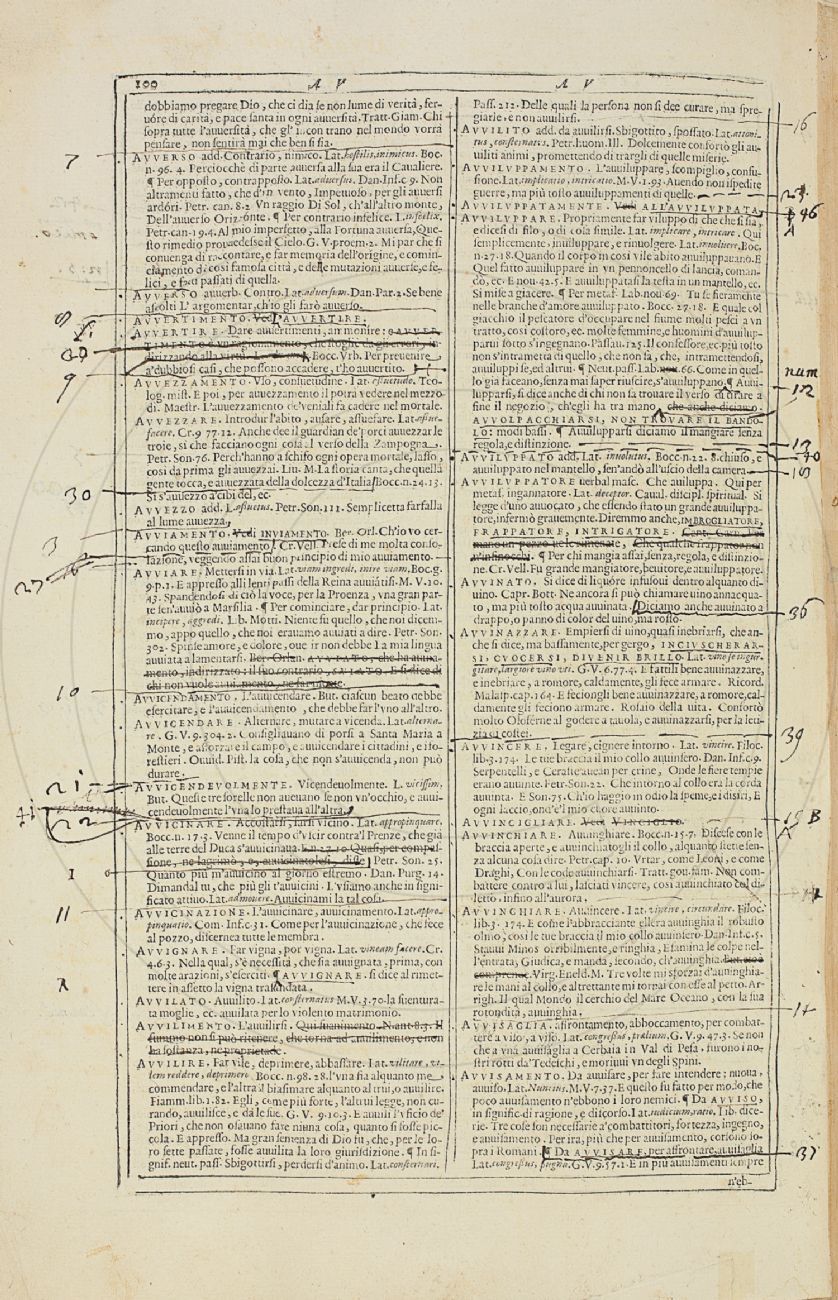 100
A V
A V
dobbiamo pregare Dio, che ci dia se non lume di verità, fer-
uóre di carità, e pace santa in ogni auuersità. Tratt. Giam. Chi
sopra tutte l'auuersità, che gl' incontrano nel mondo vorrà
pensare, non sentirà mai che ben si sia.
AVVERSO add. Contrario, nimico. Lat. hostilis, inimicus. Boc.
n. 96. 4. Perciocchè di parte auuersa alla sua era il Caualiere.
¶ Per opposto, contrapposto. Lat. aduersus. Dan. Inf. c. 9. Non
altramenti fatto, che d'vn vento, Impetuoso, per gli auuersi
ardóri. Petr. can. 8.2 Vn raggio Di Sol, ch'all'altro monte,
Dell'auuerso Orizonte. ¶ Per contrario infelice. L. infelix.
Petr. can. 19.4. Al mio imperfetto, alla Fortuna auuersa, Que-
sto rimedio prouedesse il Cielo. G. V. proem. 2. Mi par che si
conuenga di raccontare, e far memoria dell'origine, e comin-
ciamento di così famosa città, e delle mutazioni auuerse, e fe-
lici, e fatti passati di quella.
AVVERSO auuerb. Contro. Lat. aduersum. Dan. Par. 2. Se bene
ascolti L' argomentar, ch'io gli farò auuerso.
AVVERTIMENTO. Vedi AVVERTIRE.
AVVERTIRE. Dare auuertimenti, ammonire:
Bocc. Vrb. Per preuenire
a' dubbiosi casi, che possono accadere, t'ho auuertito.
AVVEZZAMENTO. Vso, consuetudine. Lat. assuetudo. Teo-
log. mist. E poi, per auuezzamento il potrà vedere nel mezzo
dì. Maestr. L'auuezzamento de' veniali fa cadere nel mortale.
AVVEZZARE. Introdur l'abito, ausare, assuefare. Lat. assue-
facere. Cr. 9. 77.12. Anche dee il guardian de' porci auuezzar le
troie, sì che facciano ogni cosa al verso della Zampogna.
Petr. Son. 76. Perch'hanno a schifo ogni opera mortale, lasso,
così da prima gli auuezzai. Liu. M. La storia canta, che quella
gente tocca, e auuezzata della dolcezza d'Italia. Bocc. n. 24. 13.
Si s'auuezzò a' cibi del, ec.
AVVEZZO add. L. assuetus. Petr. Son. 111. Semplicetta farfalla
al lume auuezza,
AVVIAMENTO. Vedi INVIAMENTO. Ber. Orl. Ch'io vo cer-
cando questo auuiamento. Cr. Vell. Prese di me molta conso-
lazione, veggendo assai buon principio di mio auuiamento.
AVVIARE. Mettersi in via. Lat. viam ingredi, inire viam. Boc. g.
9. p. 1. E appresso alli lenti passi della Reina auuiatisi. M. V. 10.
43. Spandendosi di ciò la voce, per la Proenza, vna gran par-
te sen'auuiò a Marsilia. ¶ Per cominciare, dar principio. Lat.
incipere, aggredi. Lib. Motti. Niente fu quello, che noi dicem-
mo, appo quello, che noi erauamo auuiati a dire. Petr. Son.
302. Spinse amore, e dolore, oue ir non debbe La mia lingua
auuiata a lamentarsi.
AVVICENDAMENTO. L'auuicendare. But. ciascun beato debbe
esercitare, e l'auuicendamento, che debbe far l'vno all'altro.
AVVICENDARE. Alternare, mutare a vicenda. Lat. alterna-
re. G. V. 9. 304. 2. Consigliauano di porsi a Santa Maria a
Monte, e afforzare il campo, e auuicendare i cittadini, e i fo-
restieri. Ouuid. Pist. la cosa, che non s'auuicenda, non può
durare.
AVVICENDEVOLMENTE. Vicendeuolmente. L. vicissim,
But. Queste tre sorelle non aueuano se non vn'occhio, e auui-
cendeuolmente l'vna lo prestaua all'altra.
AVVICINARE. Accostarsi, farsi vicino. Lat. appropinquare.
Bocc. n. 17. 3. Venne il tempo d'vscir contra'l Prenze, che già
alle terre del Duca s'auuicinaua.
Petr. Son. 25.
Quanto più m'auuicino al giorno estremo. Dan. Purg. 14.
Dimandal tu, che più gli t'auuicini. ¶ Vsiamo anche in signi-
ficato attiuo. Lat. admouere. Auuicinami la tal cosa.
AVVICINAZIONE. L'auuicinare, auuicinamento. Lat. appro-
pinquatio. Com. Inf. c. 31. Come per l'auuicinazione, che fece
al pozzo, discernea tutte le membra.
AVVIGNARE. Far vigna, por vigna. Lat. vineam facere. Cr.
4. 6. 3. Nella qual, s'è necessità, che sia auuignata, prima, con
molte arazioni, s'eserciti. ¶ AVVIGNARE. si dice al rimet-
tere in assetto la vigna trasandata.
AVVILATO. Auuilito. Lat. consternatus M. V. 3. 70. la suentura-
ta moglie, ec. auuilata per lo violento matrimonio.
AVVILIMENTO. L'auuilirsi.
AVVILIRE. Far vile, deprimere, abbassare. Lat. vilitare, vi-
lem reddere, deprimere. Bocc. n. 98. 28. l'vna sia alquanto me
commendare, e l'altra il biasimare alquanto altrui, o auuilire.
Fiamm. lib. 1. 82. Egli, come più forte, l'altrui legge, non cu-
rando, auuilisce, e dà le sue. G. V. 9. 10. 3. E auuilì l'vficio de'
Priori, che non osauano fare niuna cosa, quanto si fosse pic-
cola. E appresso. Ma gran sentenza di Dio fu, che, per le lo-
ro sette passate, fosse auuilita la loro giurisdizione. ¶ In si-
gnif. neut. pass. Sbigottirsi, perdersi d'animo. Lat. consternari.
Pass. 212. Delle quali la persona non si dee curare, ma spre-
giarle, e non auuilirsi.
AVVILITO add. da auuilirsi. Sbigottito, spossato. Lat. attoni-
tus, consternatus. Petr. huom. Ill. Dolcemente confortò gli au-
uiliti animi, promettendo di trargli di quelle miserie.
AVVILUPPAMENTO. L'auuiluppare, scompiglio, confu-
sione. Lat. implicatio, intricatio. M. V. 1. 93. Auendo non ispedite
guerre, ma più tosto auuiluppamenti di quelle.
AVVILUPPATAMENTE. Vedi ALL'AVVILUPPATA.
AVVILUPPARE. Propriamente far viluppo di che che si sia,
e dicesi di filo, o di cosa simile. Lat. implicare, intricare. Qui
semplicemente, inuiluppare, e rinuolgere. Lat. inuoluere. Boc.
n. 27. 18. Quando il corpo in così vile abito auuiluppauano. E
Quel fatto auuiluppare in vn pennoncello di lancia, coman-
dò, ec. E nou. 42. 5. E auuiluppatasi la testa in vn mantello, ec.
Si mise a giacere. ¶ Per metaf. Lab. nou. 69. Tu se fieramente
nelle branche d'amore auuiluppato. Bocc. 27. 18. E quale col
giacchio il pescatore d'occupare nel fiume molti pesci a vn
tratto, così costoro, ec. molte femmine, e huomini d'auuilup-
parui sotto s'ingegnano. Passau. 125. Il confessore, ec. più tosto
non s'intrametta di quello, che non sa, che, intramettendosi,
auuiluppi se, ed altrui. ¶ Neut. pass. Lab. nou. 66. Come in quel-
lo gia faceano, senza mai saper riuscire, s'auuiluppano. ¶ Auui-
lupparsi, si dice anche di chi non sa trouare il verso di tirare a
fine il negozio, ch'egli ha tra mano, che anche diciamo
AVVOLPACCHIARSI, NON TROVARE IL BANDO-
LO: modi bassi. ¶ Auuilupparsi diciamo il mangiare senza
regola, e distinzione.
AVVILUPPATO add. Lat. inuolutus. Bocc. n. 22. 8. chiuso, e
auuiluppato nel mantello, sen'andò all'vscio della camera.
AVVILUPPATORE uerbal masc. Che auuiluppa. Qui per
metaf. ingannatore. Lat. deceptor. Caual. discipl. spiritual. Si
legge d'uno auuocato, che essendo stato un grande auuiluppa-
tore, infermò grauemente. Diremmo anche, IMBROGLIATORE,
FRAPPATORE, INTRIGATORE.
¶ Per chi mangia assai, senza regola, e distinzio-
ne. Cr. Vell. Fu grande mangiatore, beuitore, e auuiluppatore.
AVVINATO. Si dice di liquóre infusoui dentro alquanto di
uino. Capr. Bott. Ne ancora si può chiamare uino annacqua-
to, ma più tosto acqua auuinata. Diciamo anche auuinato a
drappo, o panno di color del uino, ma rosso.
AVVINAZZARE. Empiersi di uino, quasi inebriarsi, che an-
che si dice, ma bassamente, per gergo, INCIVSCHERAR-
SI, CVOCERSI, DIVENIR BRILLO. Lat.
G. V. 6. 77. 4. E fattoli bene auuinazzare,
e inebriare, a romore, caldamente, gli fece armare. Ricord.
Malasp. cap. 164. E feciongli bene auuinazzare, a romore, cal-
damente gli feciono armare. Rosaio della uita. Confortò
molto Oloferne al godere a tauola, e auuinazzarsi, per la leti-
zia di costei.
AVVINCERE. Legare, cignere intorno. Lat. vincire. Filoc.
lib. 3. 174. Le tue braccia il mio collo auuinsero. Dan. Inf. c. 9.
Serpentelli, e Ceraste auean per crine, Onde le fiere tempie
erano auuinte. Petr. Son. 22. Che intorno al collo era la corda
auuinta. E Son. 75. Ch'io haggio in odio la speme, e i disiri, E
ogni laccio, ond'e'l mio cuore auuinto.
AVVINCIGLIARE. Vedi VINCIGLIO.
AVVINCHIARE. Auuinghiare. Bocc. n. 15. 7. Discese con le
braccia aperte, e auuinchiatogli il collo, alquanto stette sen-
za alcuna cosa dire. Petr. cap. 10. Vrtar, come Leoni, e come
Draghi, Con le code auuinchiarsi. Tratt. gou. fam. Non com-
battere contro a lui, lasciati vincere, così auuinchiato col di-
letto, infino all'aurora.
AVVINGHIARE. Auuincere. Lat. vincire, circundare. Filoc.
lib. 3. 174. E come l'abbracciante ellera auuinghia il robusto
olmo, così le tue braccia il mio collo auuinsero. Dan. Inf. c. 5.
Stauui Minos orribilmente, e ringhia, Esamina le colpe nel-
l'entrata, Giudica, e manda, secondo, ch'auuinghia.
Virg. Eneid. M. Tre volte mi sforzai d'auuinghia-
re le mani al collo, e altrettante mi tornai con esse al petto. Ar-
righ. Il qual Mondo il cerchio del Mare Oceano, con la sua
rotondità, auuinghia.
AVVISAGLIA. affrontamento, abboccamento, per combat-
tere a viso, a viso. Lat. congressus, prælium. G. V. 9. 47. 3. Se non
che a vna auuisaglia a Cerbaia in Val di Pesa, furono i no-
stri rotti da' Tedeschi, e moriuui vn degli Spini.
AVVISAMENTO. Da auuisare, per fare intendere: nuoua,
auuiso. Lat. Nuncius. M. V. 7. 37. E questo fu fatto per modo, che
poco auuisamento n'ebbono i loro nemici. ¶ Da AVVISO,
in signific. di ragione, e discorso. Lat. iudicium, ratio, Lib. dice-
rie. Tre cose son necessarie a' combattitori, fortezza, ingegno,
e auuisamento. Per ira, più che per auuisamento, corsono so-
pra i Romani. ¶ Da AVVISARE, per affrontare, auuisaglia
Lat. congressus, pugna. G. V. 9. 57. 1. E in più auuisamenti sempre
n'eb-
7
9
30
3
27
10
21
22
I
11
16
num
12
40
36
39
15 B
14
37